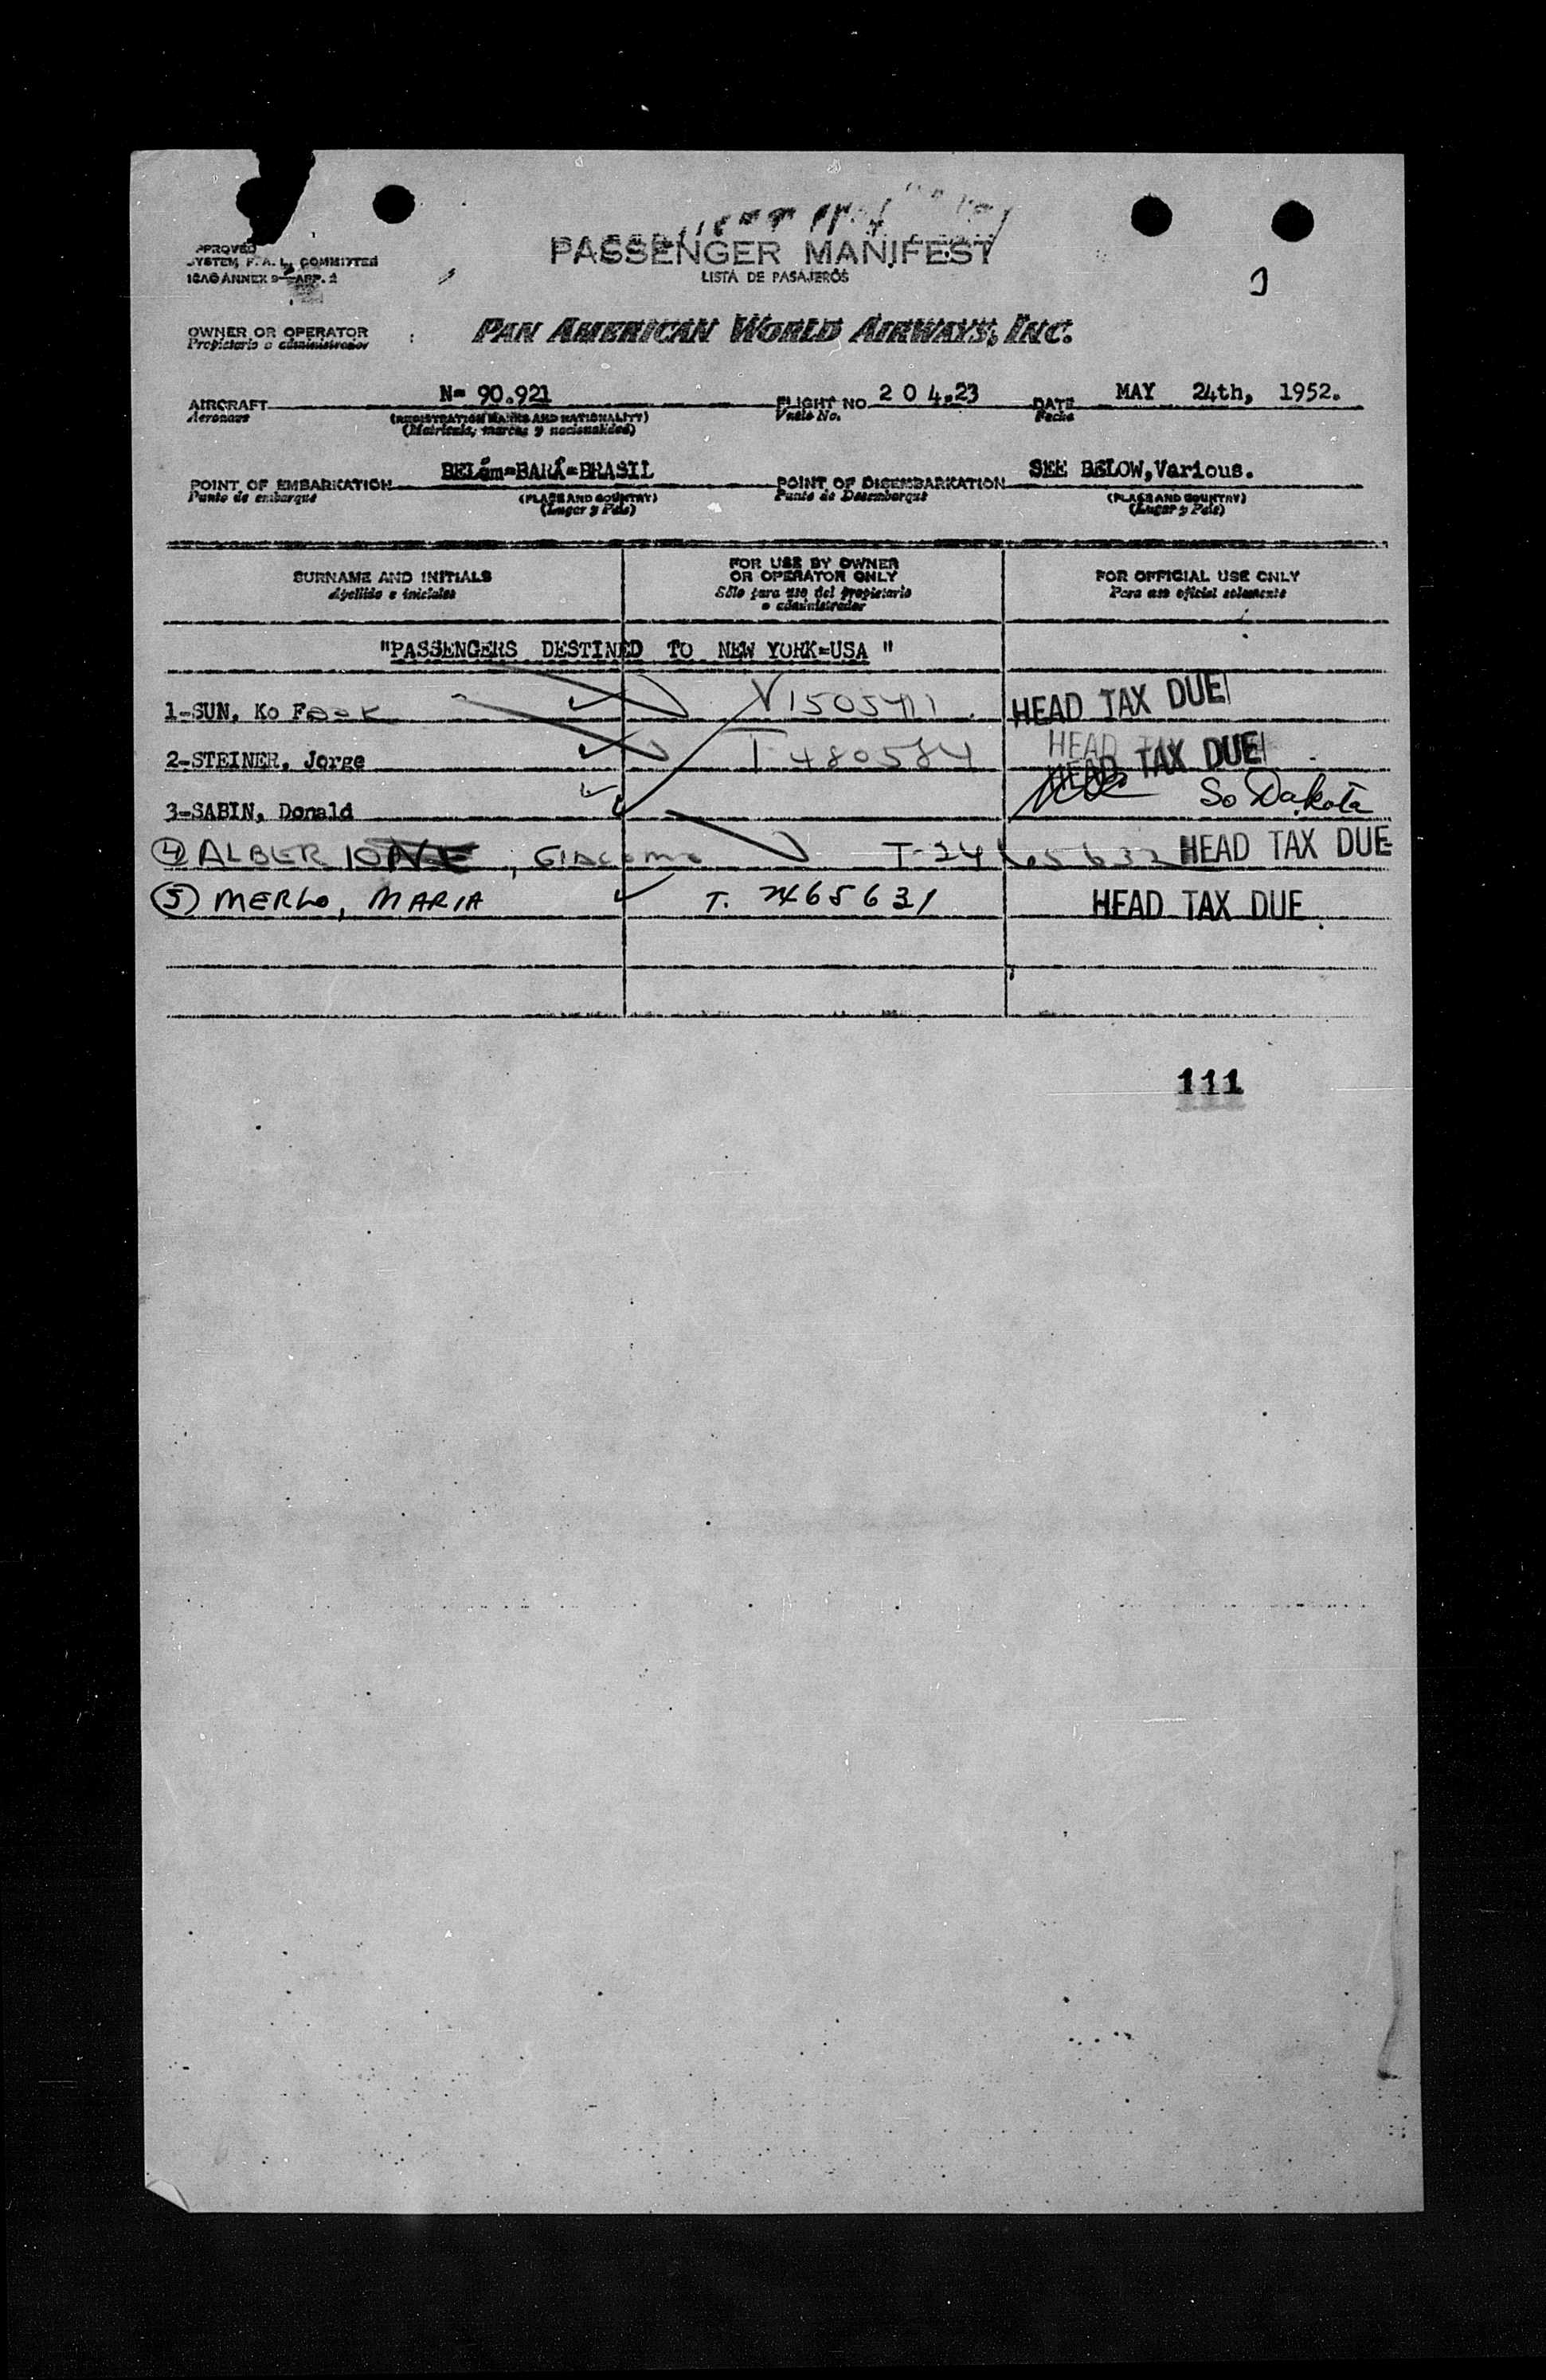 PPROVED
YSTEM, F. A. L. COMMITTEE
ICAO ANNEX 9—APP. 2
PASSENGER MANIFEST
LISTA DE PASAJEROS
OWNER OR OPERATOR : PAN AMERICAN WORLD AIRWAYS, INC.
Propietario o administrador
AIRCRAFT N= 90.921 FLIGHT NO 2 0 4.23 DATE MAY 24th, 1952.
Aeronave (REGISTRATION MARKS AND NATIONALITY) Vuelo No. Fecha
(Matricula, marcas y nacionalidad)
POINT OF EMBARKATION BELém=BARÁ=BRASIL POINT OF DISEMBARKATION SEE BELOW,Various.
Punto de embarque (PLACE AND COUNTRY) Punto de Desembarque (PLACE AND COUNTRY)
(Lugar y Pais) (Lugar y Pais)
SURNAME AND INITIALS FOR USE BY OWNER OR OPERATOR ONLY FOR OFFICIAL USE ONLY
Apellido e iniciales Sólo para uso del propietario o administrador Para uso oficial solamente
"PASSENGERS DESTINED TO NEW YORK=USA "
1-SUN, Ko Fook HEAD TAX DUE
2-STEINER, Jorge T 480584 HEAD TAX DUE
3-SABIN, Donald So Dakota
4 ALBERIONE, Giacomo HEAD TAX DUE
5 MERLO, MARIA T. 2465631 HEAD TAX DUE
111